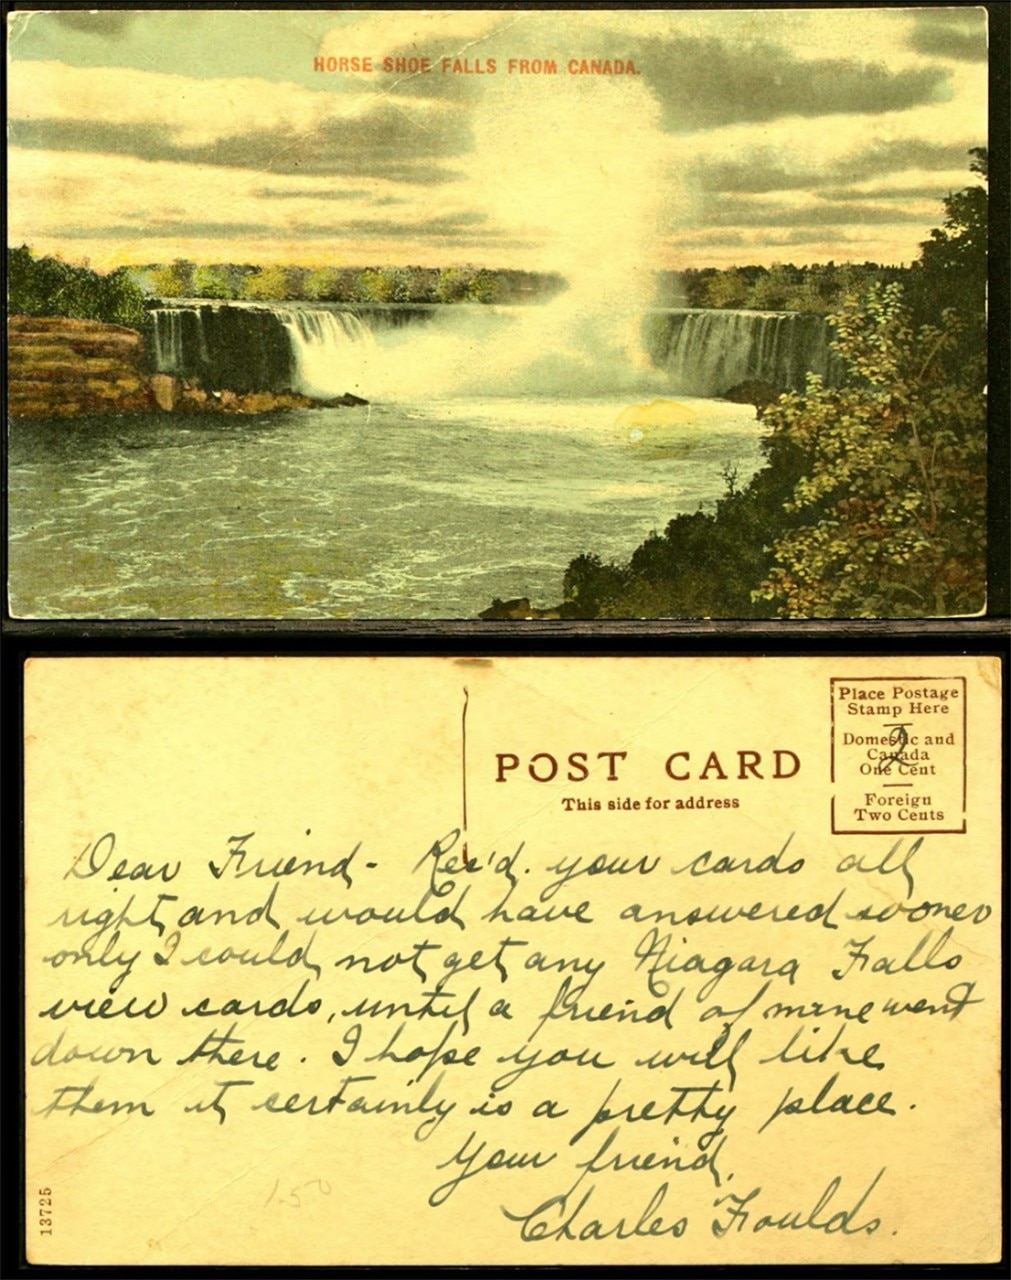 HORSE SHOE FALLS FROM CANADA.
POST CARD
This side for address
Place Postage
Stamp Here
Domestic and
Canada
One Cent
Foreign
Two Cents
2
Dear Friend - Rec'd. your cards all
right, and would have answered sooner
only I could not get any Niagara Falls
view cards, until a friend of mine went
down there. I hope you will like
them it certainly is a pretty place.
Your friend,
Charles Foulds.
1.50
13725